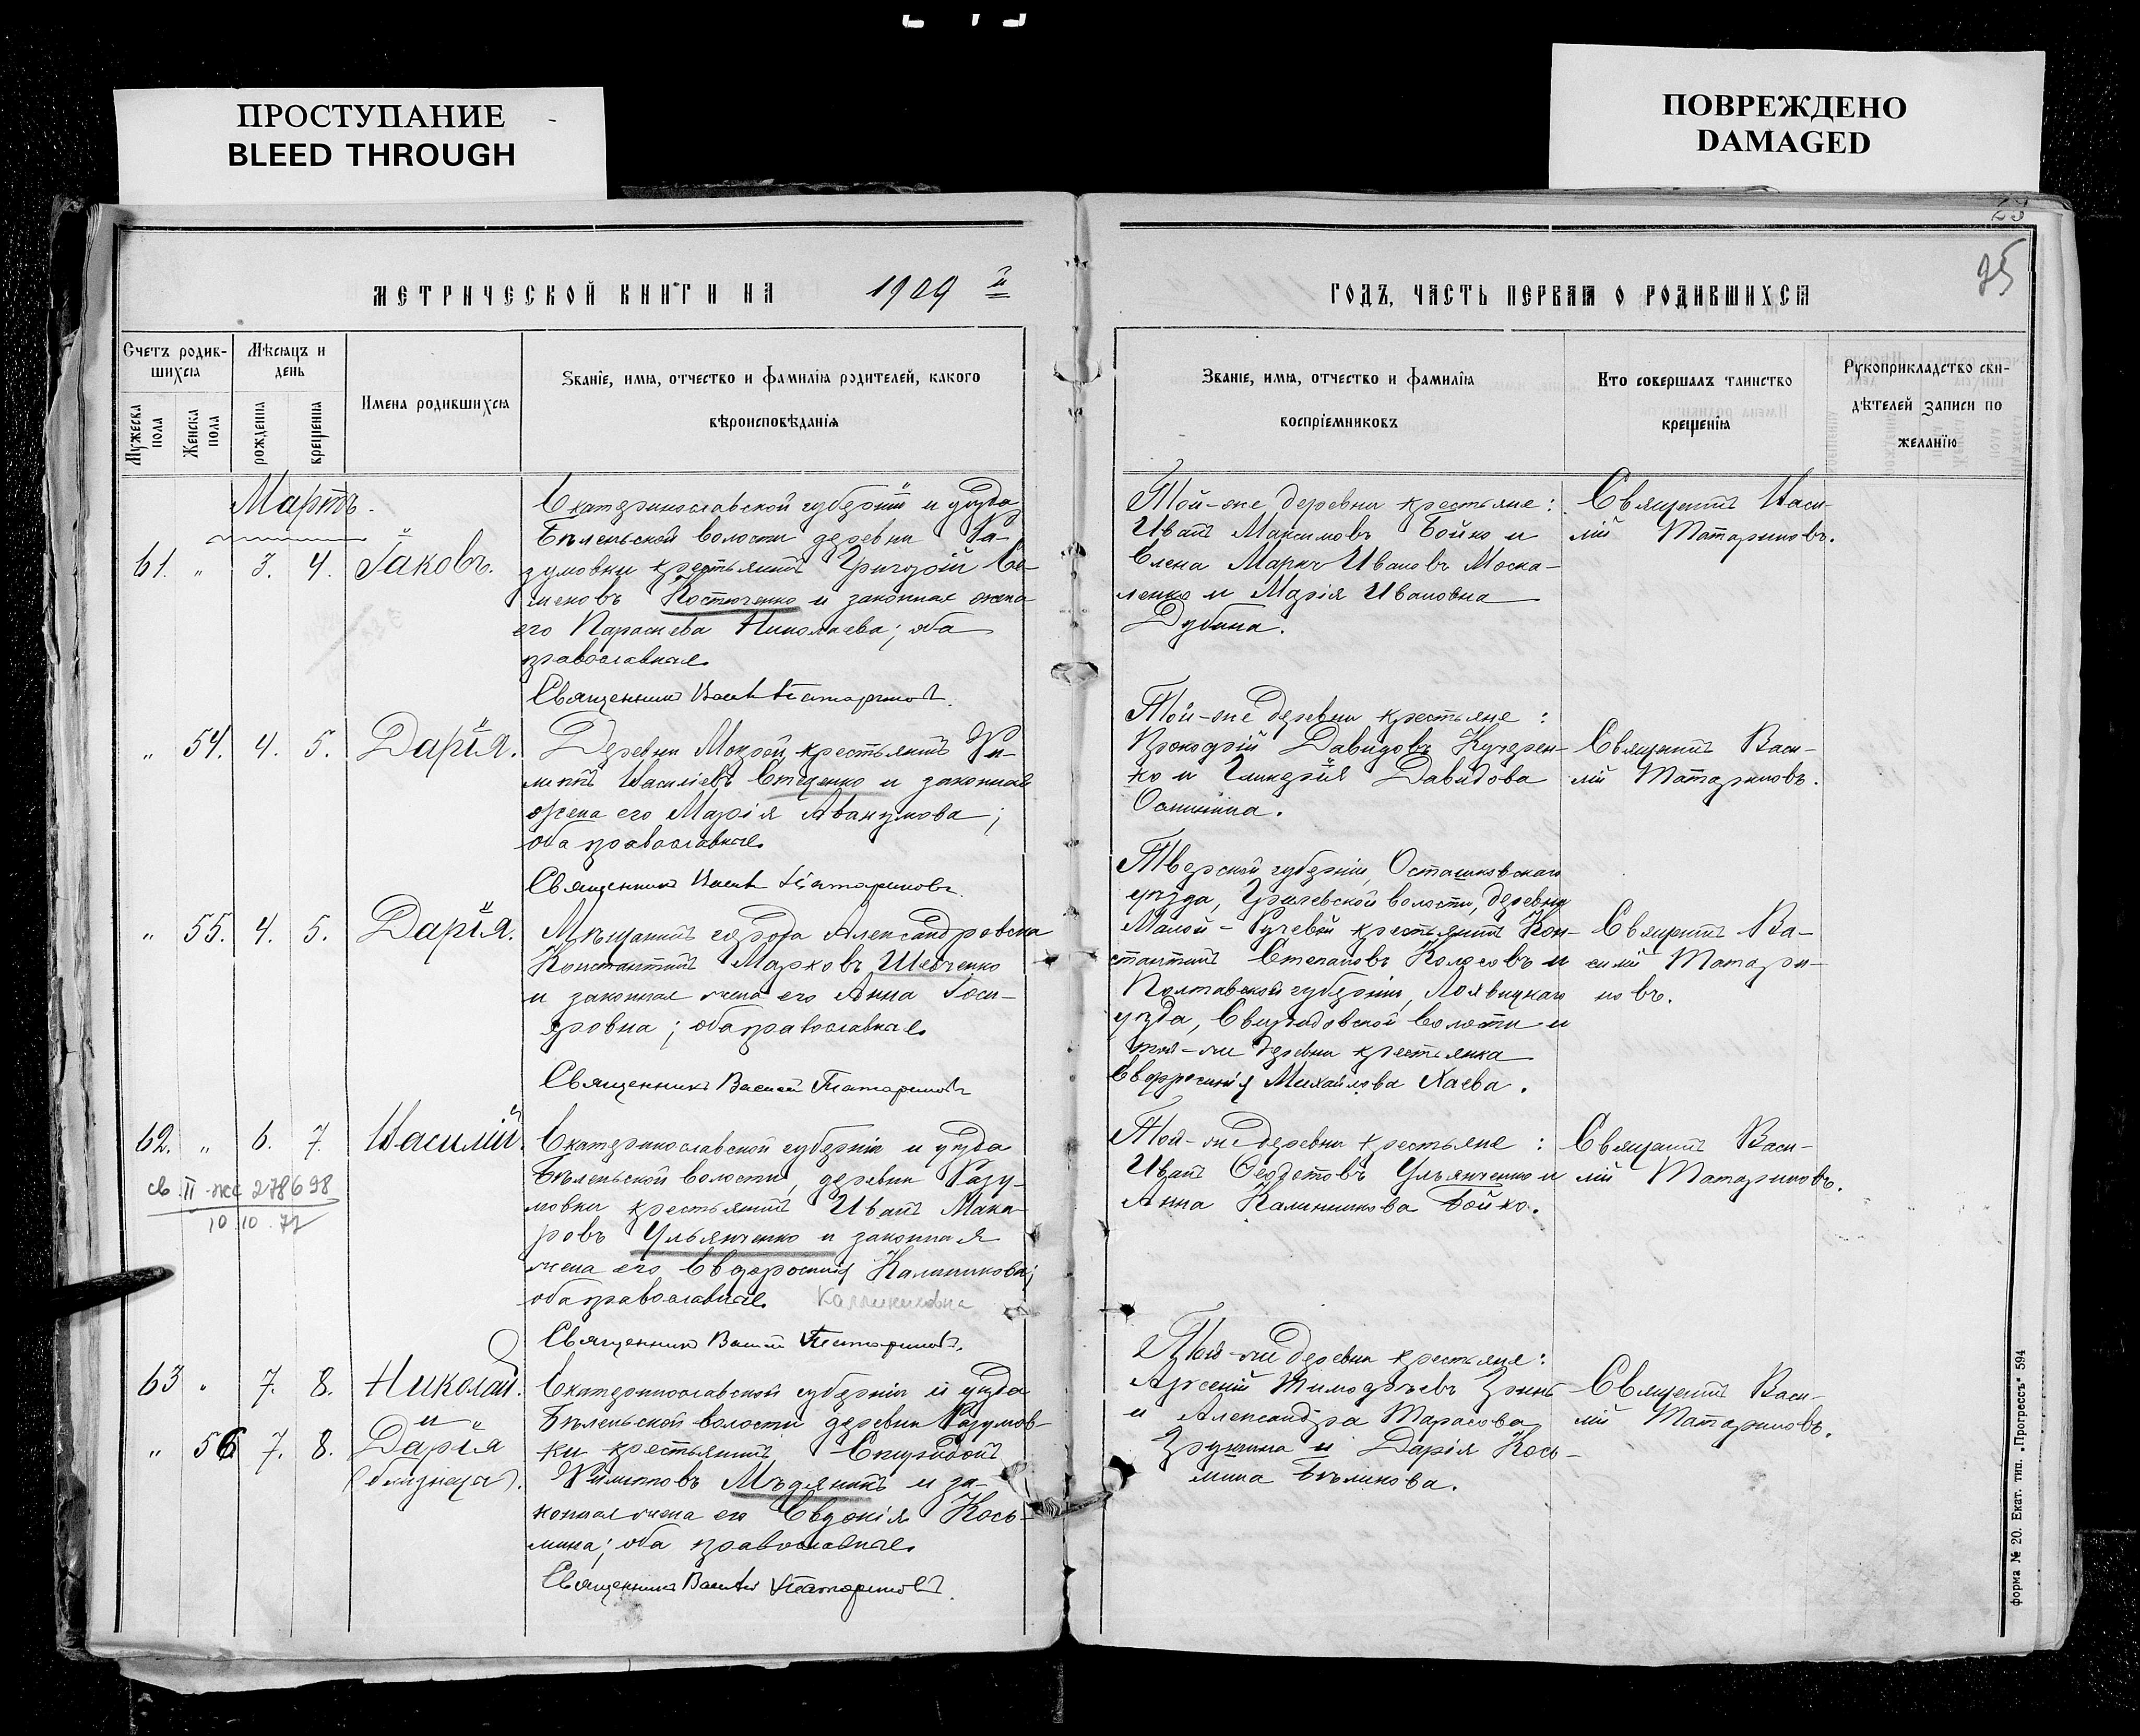 ПРОСТУПАНИЕ
BLEED THROUGH
ПОВРЕЖДЕНО
DAMAGED
МЕТРИЧЕСКОЙ КНИГИ НА 1909 й
Счетъ родив-
шихся
Мѣсяцъ и
день
Мужеска
пола
Женска
пола
рожденія
крещенія
Имена родившихся
Званіе, имя, отчество и фамилія родителей, какого
вѣроисповѣданія
Мартъ.
61. " 3. 4. Іаковъ.
Екатеринославской губерніи и уѣзда
Бѣленьской волости деревни Ра-
зумовки крестьянинъ Григорій Се-
меновъ Костюченко и законная жена
его Параскева Николаева; оба
православные
Священникъ Васил Татариновъ.
" 54. 4. 5. Дарія.
Деревни Мокрой, крестьянинъ Фи-
липпъ Василіевъ Стеценко и законная
жена его Марія Авакумова;
оба православные
Священникъ Васил Татариновъ.
" 55. 4. 5. Дарія.
Мѣщанинъ города Александровска
Константинъ Марковъ Шевченко
и законная жена его Анна
; оба православные
Священникъ Василій Татариновъ
62. " 6. 7. Василій.
св. II-жс 278698
10.10.72
Екатеринославской губерніи и уѣзда
Бѣленьской волости, деревни Разу-
мовки крестьянинъ Иванъ Мака-
ровъ Ульянченко и законная
жена его Евфросинія Калиникова;
оба православные Каллиниковна
Священникъ Василій Татариновъ.
63 " 7. 8. Николай.
и
" 56 7. 8. Дарія
(близнецы).
Екатеринославской губерніи и уѣзда
Бѣленьской волости деревни Разумов-
ки крестьянинъ Спиридонъ
Филипповъ Мѣдяникъ и за-
конная жена его Евдокія Кось-
мина; оба православные
Священникъ Василій Татариновъ.
25
ГОДЪ, ЧАСТЬ ПЕРВАЯ О РОДИВШИХСЯ
Званіе, имя, отчество и фамилія
воспріемниковъ
Кто совершалъ таинство
крещенія
Рукоприкладство сви-
дѣтелей записи по
желанію
Той-же деревни крестьяне:
Иванъ Максимовъ Бойко и
Елена Ивановъ Моска-
ленко и Марія Ивановна
Дубина.
Священникъ Васи-
лій Татариновъ.
Той-же деревни крестьяне:
Прокофій Давидовъ Кучерен-
ко и Гликерія Давидова
Священникъ Васи-
лій Татариновъ.
Тверской губерніи, Осташковскаго
уѣзда, волости, деревни
Малой- крестьянинъ Кон-
стантинъ Степановъ Колосовъ и
Полтавской губерніи, Лохвицкаго
уѣзда, Свиридовской волости и
той-же деревни крестьянка
Евфросинія Михайлова Хаева.
Священникъ Ва-
силій Татари-
новъ.
Той-же деревни крестьяне:
Иванъ Феоктистовъ Ульянченко и
Анна Калиникова Бойко.
Священникъ Васи-
лій Татариновъ.
Той-же деревни крестьяне:
Арсеній Тимофѣевъ
и Александра Тарасова
и Дарія Кось-
мина Бѣликова.
Священникъ Васи-
лій Татариновъ.
Форма № 20. Екат. тип. „Прогрессъ" 594